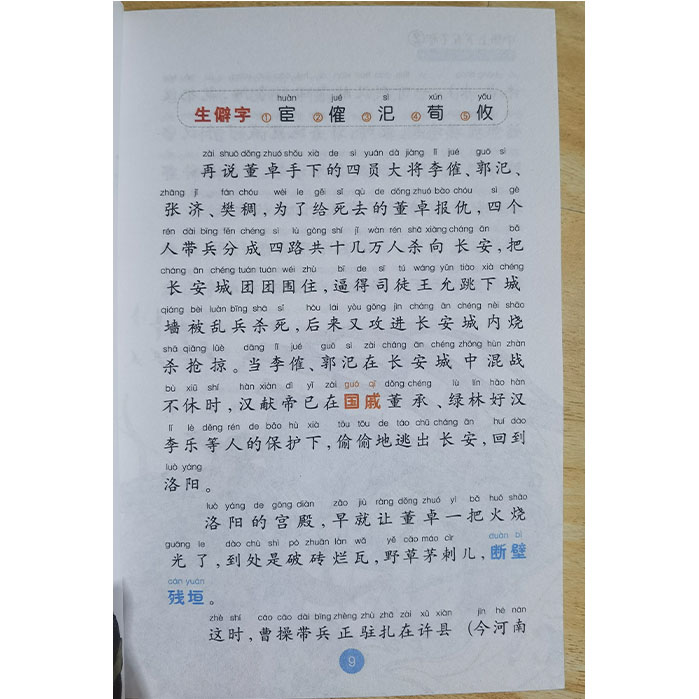 huàn jué sì xún yōu
生僻字 ①宦 ②傕 ③汜 ④荀 ⑤攸
zài shuō dǒng zhuó shǒu xià de sì yuán dà jiàng lǐ jué guō sì
再说董卓手下的四员大将李傕、郭汜、
zhāng jǐ fán chóu wèi le gěi sǐ qù de dǒng zhuó bào chóu sì gè
张济、樊稠,为了给死去的董卓报仇,四个
rén dài bīng fēn chéng sì lù gòng shí jǐ wàn rén shā xiàng cháng ān bǎ
人带兵分成四路共十几万人杀向长安,把
cháng ān chéng tuán tuán wéi zhù bī de sī tú wáng yǔn tiào xià chéng
长安城团团围住,逼得司徒王允跳下城
qiáng bèi luàn bīng shā sǐ hòu lái yòu gōng jìn cháng ān chéng nèi shāo
墙被乱兵杀死,后来又攻进长安城内烧
shā qiǎng lüè dāng lǐ jué guō sì zài cháng ān chéng zhōng hùn zhàn
杀抢掠。当李傕、郭汜在长安城中混战
bù xiū shí hàn xiàn dì yǐ zài guó qī dǒng chéng lù lín hǎo hàn
不休时,汉献帝已在国戚董承、绿林好汉
lǐ lè děng rén de bǎo hù xià tōu tōu de táo chū cháng ān huí dào
李乐等人的保护下,偷偷地逃出长安,回到
luò yáng
洛阳。
luò yáng de gōng diàn zǎo jiù ràng dǒng zhuó yì bǎ huǒ shāo
洛阳的宫殿,早就让董卓一把火烧
guāng le dào chù shì pò zhuān làn wǎ yě cǎo máo cìr duàn bì
光了,到处是破砖烂瓦,野草茅刺儿,断壁
cán yuán
残垣。
zhè shí cáo cāo dài bīng zhèng zhù zhā zài xǔ xiàn jīn hé nán
这时,曹操带兵正驻扎在许县(今河南
9